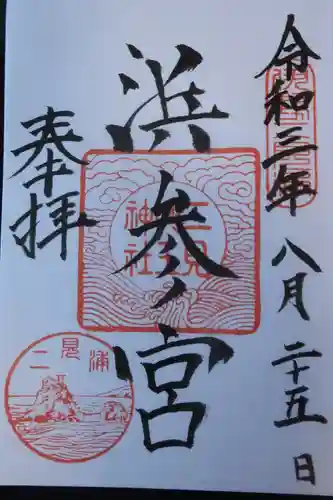 令和三年八月二十五日
浜参ノ宮
奉拝
二見
神社
二見浦